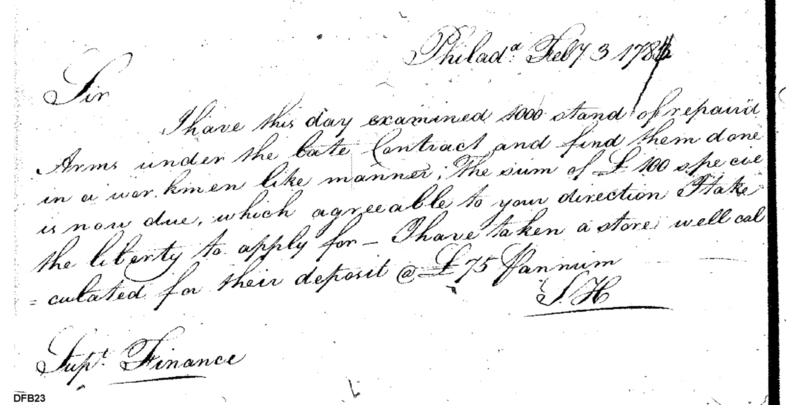 Philadª. Feby 3 178
Sir
I have this day examined 1000 stand of repair'd
Arms under the late Contract and find them done
in a workmen like manner; The sum of £ 100 specie
is now due, which agreeable to your direction I take
the liberty to apply for _ I have taken a store well cal
= culated for their deposit @ £ 75 ⅌ annum
S. H
Supt. Finance
DFB23